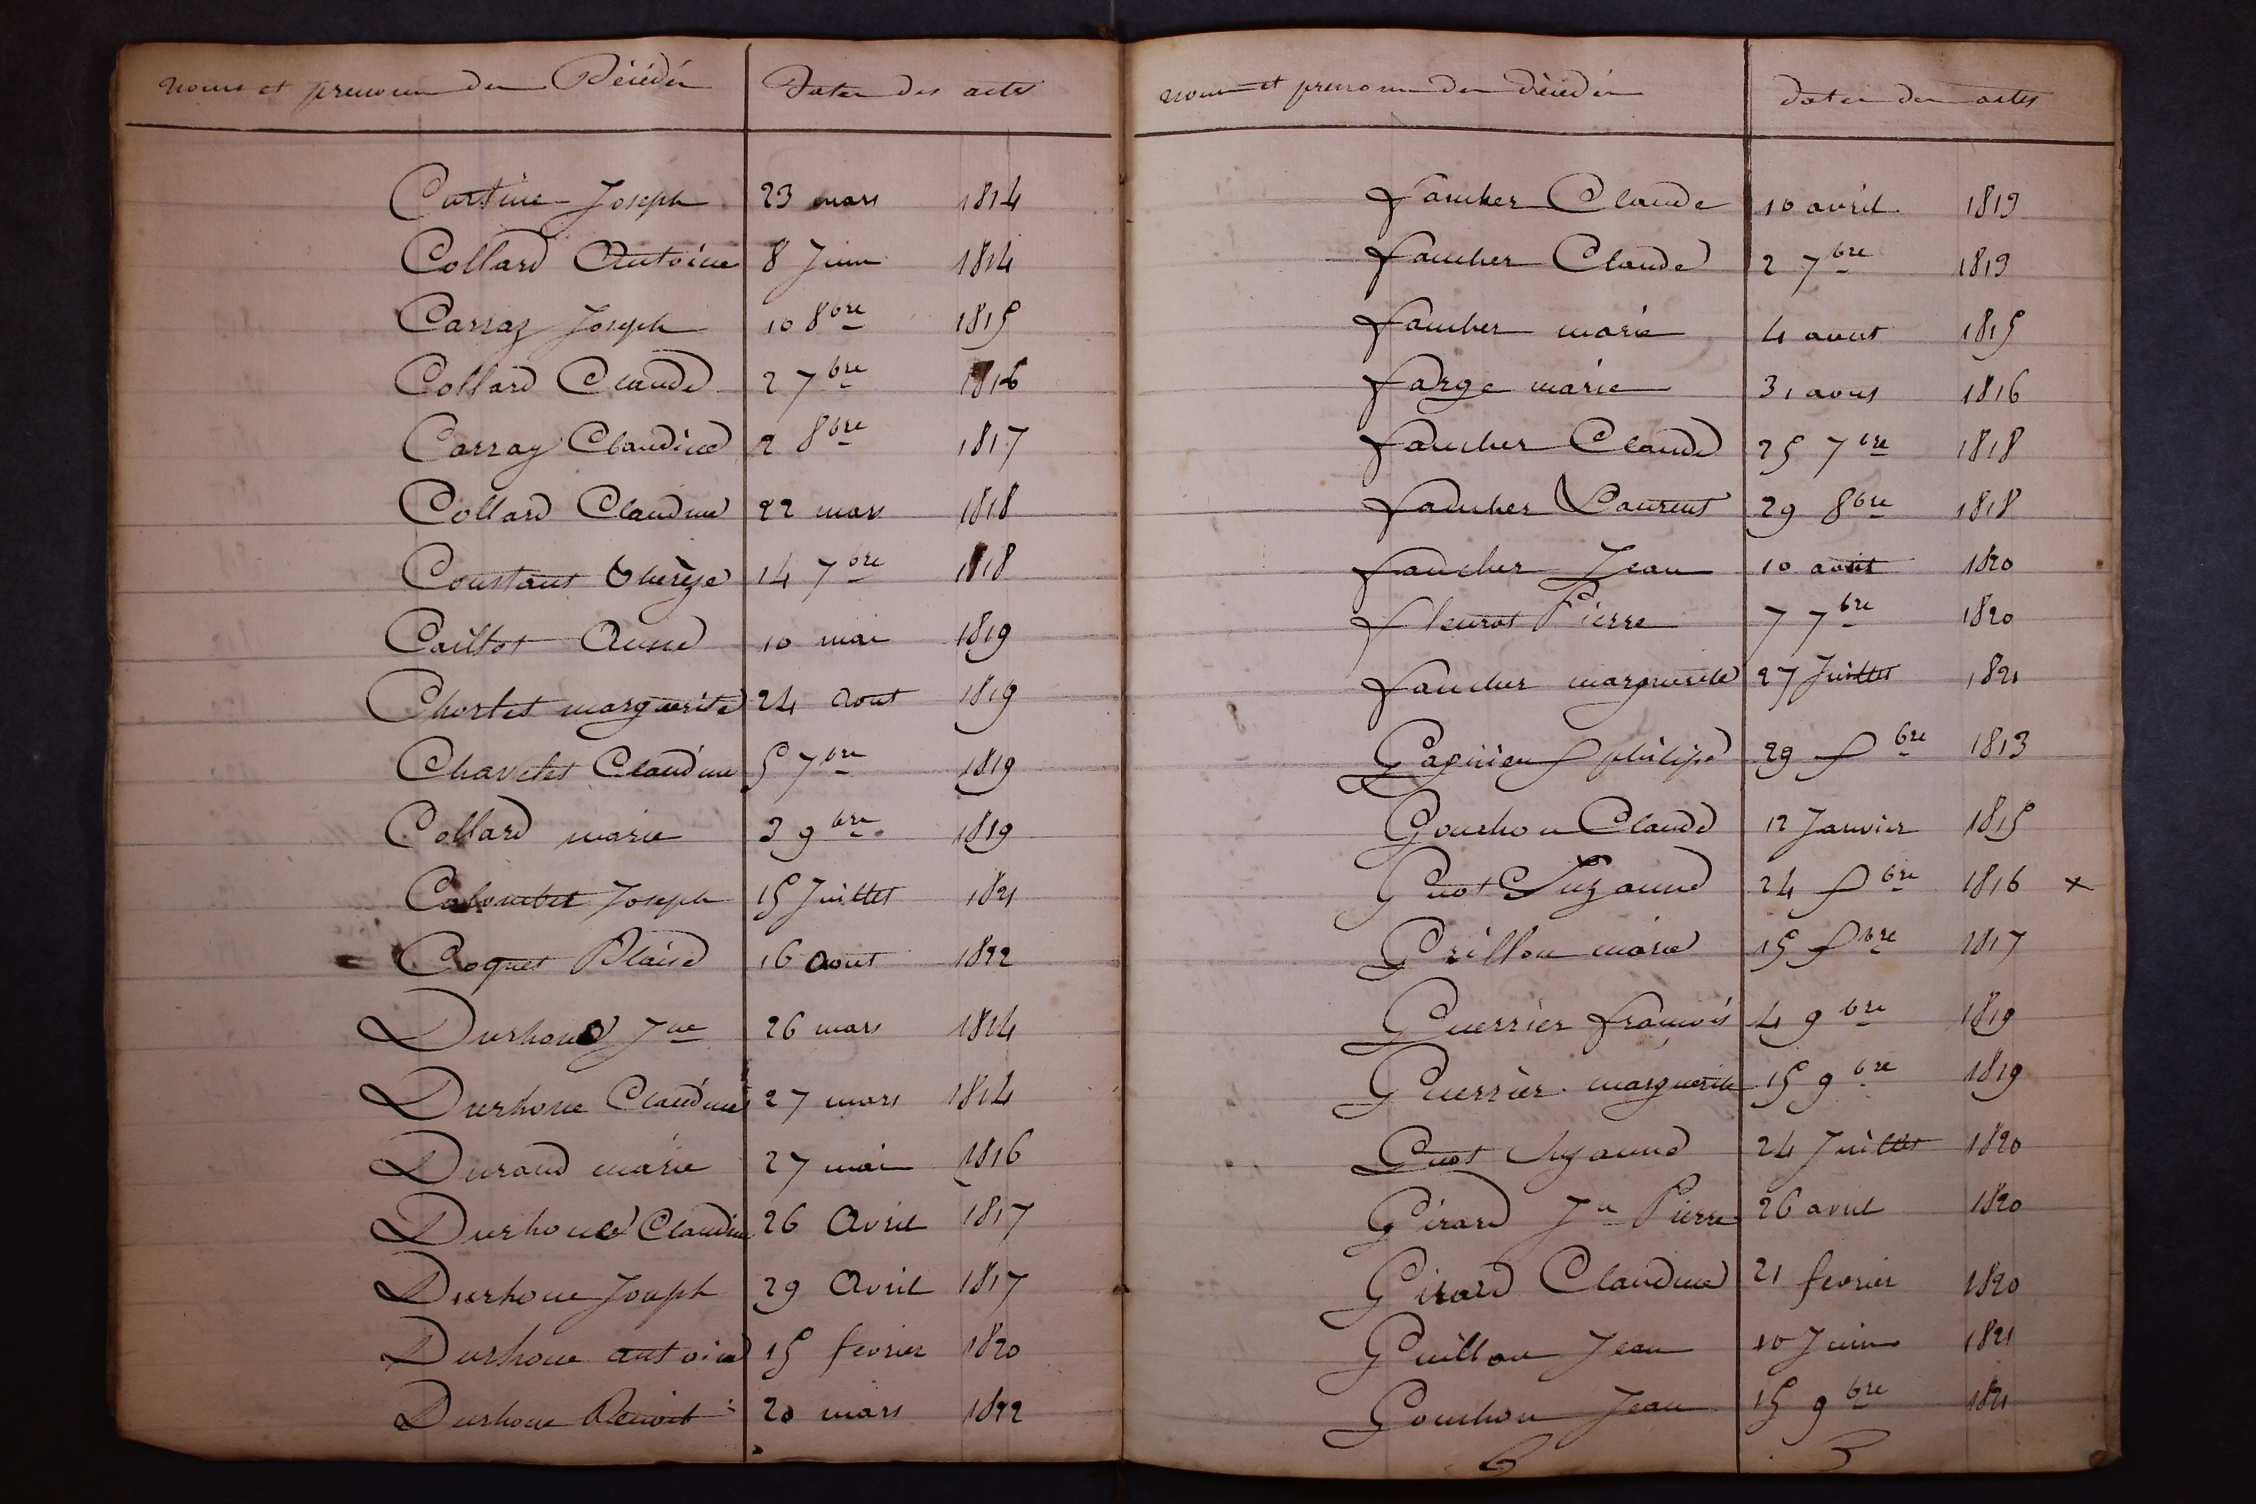 noms et prenoms des Décédés
Dates des actes
Curtine Joseph 23 mars 1814
Collard Antoine 8 Juin 1814
Carraz Joseph 10 8bre 1815
Collard Claude 2 7bre 1816
Carraz Claudine 2 8bre 1817
Collard Claudine 22 mars 1818
Constant Therèze 14 7bre 1818
Caillot Anne 10 mai 1819
Chorlet marguerite 24 Aout 1819
Chavelet Claudine 5 7bre 1819
Collard marie 3 9bre 1819
Colombet Joseph 15 Juillet 1821
Coquet Blaise 16 Aout 1822
Durhone Jne 26 mars 1814
Durhone Claudine 27 mars 1814
Durand marie 27 mai 1816
Durhone Claudine 26 Avril 1817
Durhone Joseph 29 Avril 1817
Durhone antoine 15 fevrier 1820
Durhone Benoit 20 mars 1822
noms et prenoms des décédés
dates des actes
faucher Claude 10 avril 1819
faucher Claude 2 7bre 1819
faucher marie 4 aout 1815
farge marie 31 aout 1816
faucher Claude 25 7bre 1818
faucher Laurent 29 8bre 1818
faucher Jean 10 août 1820
fleurot Pierre 7 7bre 1820
faucher marguerite 27 Juillet 1821
philipe 29 bre 1813
Gourhon Claude 12 Janvier 1815
Guot Suzanne 24 bre 1816 x
Grillon marie 15 bre 1817
Guerrier françois 4 9bre 1819
Guerrier marguerite 15 9bre 1819
Guot Suzanne 24 Juillet 1820
Girard Jn Pierre 26 avril 1820
Girard Claudine 21 fevrier 1820
Guillon Jean 10 Juin 1821
Gourhon Jean 15 9bre 1821